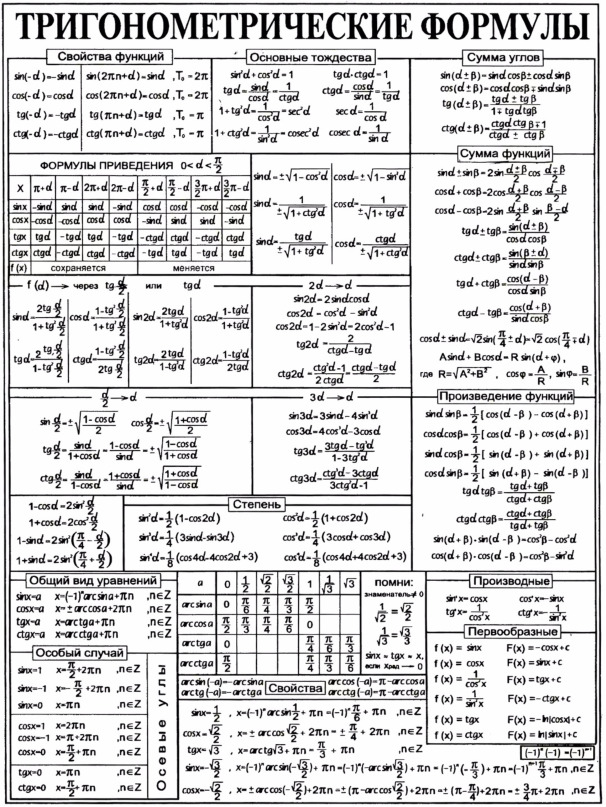 ТРИГОНОМЕТРИЧЕСКИЕ ФОРМУЛЫ
Свойства функций
sin(-α)=-sinα sin(2πn+α)=sinα ,T₀ = 2π
cos(-α)=cosα cos(2πn+α)=cosα ,T₀ = 2π
tg(-α)=-tgα tg(πn+α)=tgα ,T₀ = π
ctg(-α)=-ctgα ctg(πn+α)=ctgα ,T₀ = π
Основные тождества
sin²α+cos²α=1 tgα·ctgα=1
tgα=sinα/cosα=1/ctgα ctgα=cosα/sinα=1/tgα
1+tg²α=1/cos²α=sec²α secα=1/cosα
1+ctg²α=1/sin²α=cosec²α cosecα=1/sinα
Сумма углов
sin(α±β)=sinα cosβ±cosα sinβ
cos(α±β)=cosα cosβ∓sinα sinβ
tg(α±β)=(tgα±tgβ)/(1∓tgα tgβ)
ctg(α±β)=(ctgα ctgβ∓1)/(ctgα±ctgβ)
ФОРМУЛЫ ПРИВЕДЕНИЯ 0<α<π/2
X π+α π-α 2π+α 2π-α π/2+α π/2-α 3/2π+α 3/2π-α
sinx -sinα sinα sinα -sinα cosα cosα -cosα -cosα
cosx -cosα -cosα cosα cosα -sinα sinα sinα -sinα
tgx tgα -tgα tgα -tgα -ctgα ctgα -ctgα ctgα
ctgx ctgα -ctgα ctgα -ctgα -tgα tgα -tgα tgα
f(x) сохраняется меняется
sinα=±√(1-cos²α) cosα=±√(1-sin²α)
sinα=1/(±√(1+ctg²α)) cosα=1/(±√(1+tg²α))
sinα=tgα/(±√(1+tg²α)) cosα=ctgα/(±√(1+ctg²α))
Сумма функций
sinα±sinβ=2sin (α±β)/2 cos (α∓β)/2
cosα+cosβ=2cos (α+β)/2 cos (α-β)/2
cosα-cosβ=2sin (α+β)/2 sin (β-α)/2
tgα±tgβ=sin(α±β)/(cosα cosβ)
ctgα±ctgβ=sin(β±α)/(sinα sinβ)
tgα+ctgβ=cos(α-β)/(cosα sinβ)
ctgα-tgβ=cos(α+β)/(sinα cosβ)
cosα±sinα=√2sin(π/4±α)=√2cos(π/4∓α)
Asinα+Bcosα=R sin(α+φ),
где R=√(A²+B²) , cosφ=A/R, sinφ=B/R
f(α) → через tg α/2 или tgα
sinα=2tg α/2/(1+tg² α/2) cosα=(1-tg² α/2)/(1+tg² α/2) sin2α=2tgα/(1+tg²α) cos2α=(1-tg²α)/(1+tg²α)
tgα=2tg α/2/(1-tg² α/2) ctgα=(1-tg² α/2)/(2tg α/2) tg2α=2tgα/(1-tg²α) ctg2α=(1-tg²α)/(2tgα)
2α → α
sin2α=2sinα cosα
cos2α=cos²α-sin²α
cos2α=1-2sin²α=2cos²α-1
tg2α=2/(ctgα-tgα)
ctg2α=(ctg²α-1)/(2ctgα)=(ctgα-tgα)/2
α/2 → α
sin α/2=±√((1-cosα)/2) cos α/2=±√((1+cosα)/2)
tg α/2=sinα/(1+cosα)=(1-cosα)/sinα=±√((1-cosα)/(1+cosα))
ctg α/2=sinα/(1-cosα)=(1+cosα)/sinα=±√((1+cosα)/(1-cosα))
3α → α
sin3α=3sinα-4sin³α
cos3α=4cos³α-3cosα
tg3α=(3tgα-tg³α)/(1-3tg²α)
ctg3α=(ctg³α-3ctgα)/(3ctg²α-1)
Произведение функций
sinα sinβ=1/2[cos(α-β)-cos(α+β)]
cosα cosβ=1/2[cos(α-β)+cos(α+β)]
sinα cosβ=1/2[sin(α-β)+sin(α+β)]
cosα sinβ=1/2[sin(α+β)-sin(α-β)]
tgα tgβ=(tgα+tgβ)/(ctgα+ctgβ)
ctgα ctgβ=(ctgα+ctgβ)/(tgα+tgβ)
sin(α+β)·sin(α-β)=cos²β-cos²α
cos(α+β)·cos(α-β)=cos²β-sin²α
1-cosα=2sin² α/2
1+cosα=2cos² α/2
1-sinα=2sin²(π/4-α/2)
1+sinα=2sin²(π/4+α/2)
Степень
sin²α=1/2(1-cos2α) cos²α=1/2(1+cos2α)
sin³α=1/4(3sinα-sin3α) cos³α=1/4(3cosα+cos3α)
sin⁴α=1/8(cos4α-4cos2α+3) cos⁴α=1/8(cos4α+4cos2α+3)
Общий вид уравнений
sinx=a x=(-1)ⁿarcsina+πn ,n∈Z
cosx=a x=±arccosa+2πn ,n∈Z
tgx=a x=arctga+πn ,n∈Z
ctgx=a x=arcctga+πn ,n∈Z
a 0 1/2 √2/2 √3/2 1 1/√3 √3
arcsina 0 π/6 π/4 π/3 π/2
arccosa π/2 π/3 π/4 π/6 0
arctga 0 π/4 π/6 π/3
arcctga π/2 π/4 π/3 π/6
ПОМНИ:
знаменатель≠0
1/√2=√2/2
1/√3=√3/3
sinx≈tgx≈x,
если Xрад→0
Производные
sin'x=cosx cos'x=-sinx
tg'x=1/cos²x ctg'x=-1/sin²x
Первообразные
f(x)=sinx F(x)=-cosx+c
f(x)=cosx F(x)=sinx+c
f(x)=1/cos²x F(x)=tgx+c
f(x)=1/sin²x F(x)=-ctgx+c
f(x)=tgx F(x)=-ln|cosx|+c
f(x)=ctgx F(x)=ln|sinx|+c
Особый случай
sinx=1 x=π/2+2πn ,n∈Z
sinx=-1 x=-π/2+2πn ,n∈Z
sinx=0 x=πn ,n∈Z
cosx=1 x=2πn ,n∈Z
cosx=-1 x=π+2πn ,n∈Z
cosx=0 x=π/2+πn ,n∈Z
tgx=0 x=πn ,n∈Z
ctgx=0 x=π/2+πn ,n∈Z
Осевые углы
arcsin(-a)=-arcsina arccos(-a)=π-arccosa
arctg(-a)=-arctga arcctg(-a)=π-arcctga
Свойства
sinx=1/2 , x=(-1)ⁿarcsin 1/2+πn=(-1)ⁿπ/6+πn ,n∈Z
cosx=√2/2 , x=±arccos √2/2+2πn=±π/4+2πn ,n∈Z
tgx=√3 , x=arctg√3+πn=π/3+πn ,n∈Z
(-1)ⁿ(-1)=(-1)ⁿ⁺¹
sinx=-√3/2 , x=(-1)ⁿarcsin(-√3/2)+πn=(-1)ⁿ(-arcsin √3/2)+πn=(-1)ⁿ(-π/3)+πn=(-1)ⁿ⁺¹π/3+πn ,n∈Z
cosx=-√2/2 , x=±arccos(-√2/2)+2πn=±(π-arccos √2/2)+2πn=±(π-π/4)+2πn=±3/4π+2πn ,n∈Z